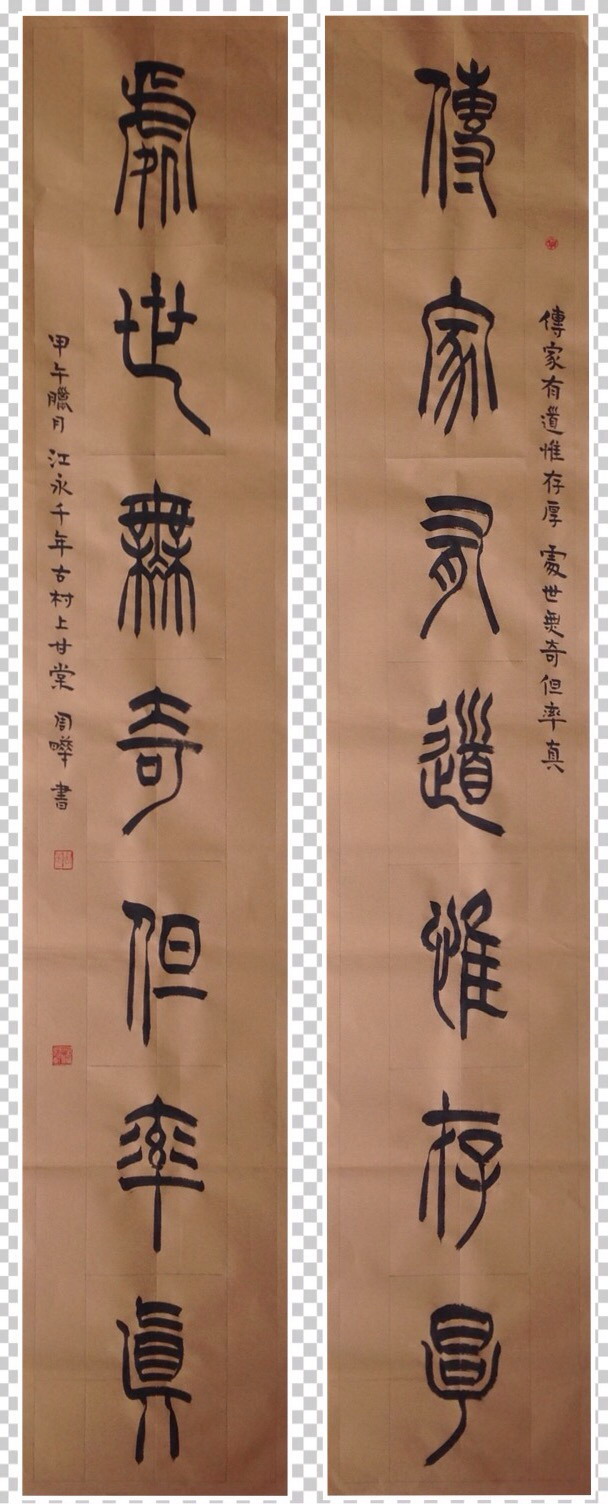 傳家有道惟存厚 處世無奇但率真
傳家有道惟存厚
處世無奇但率眞
甲午臘月 江永千年古村上甘棠 周曄 書